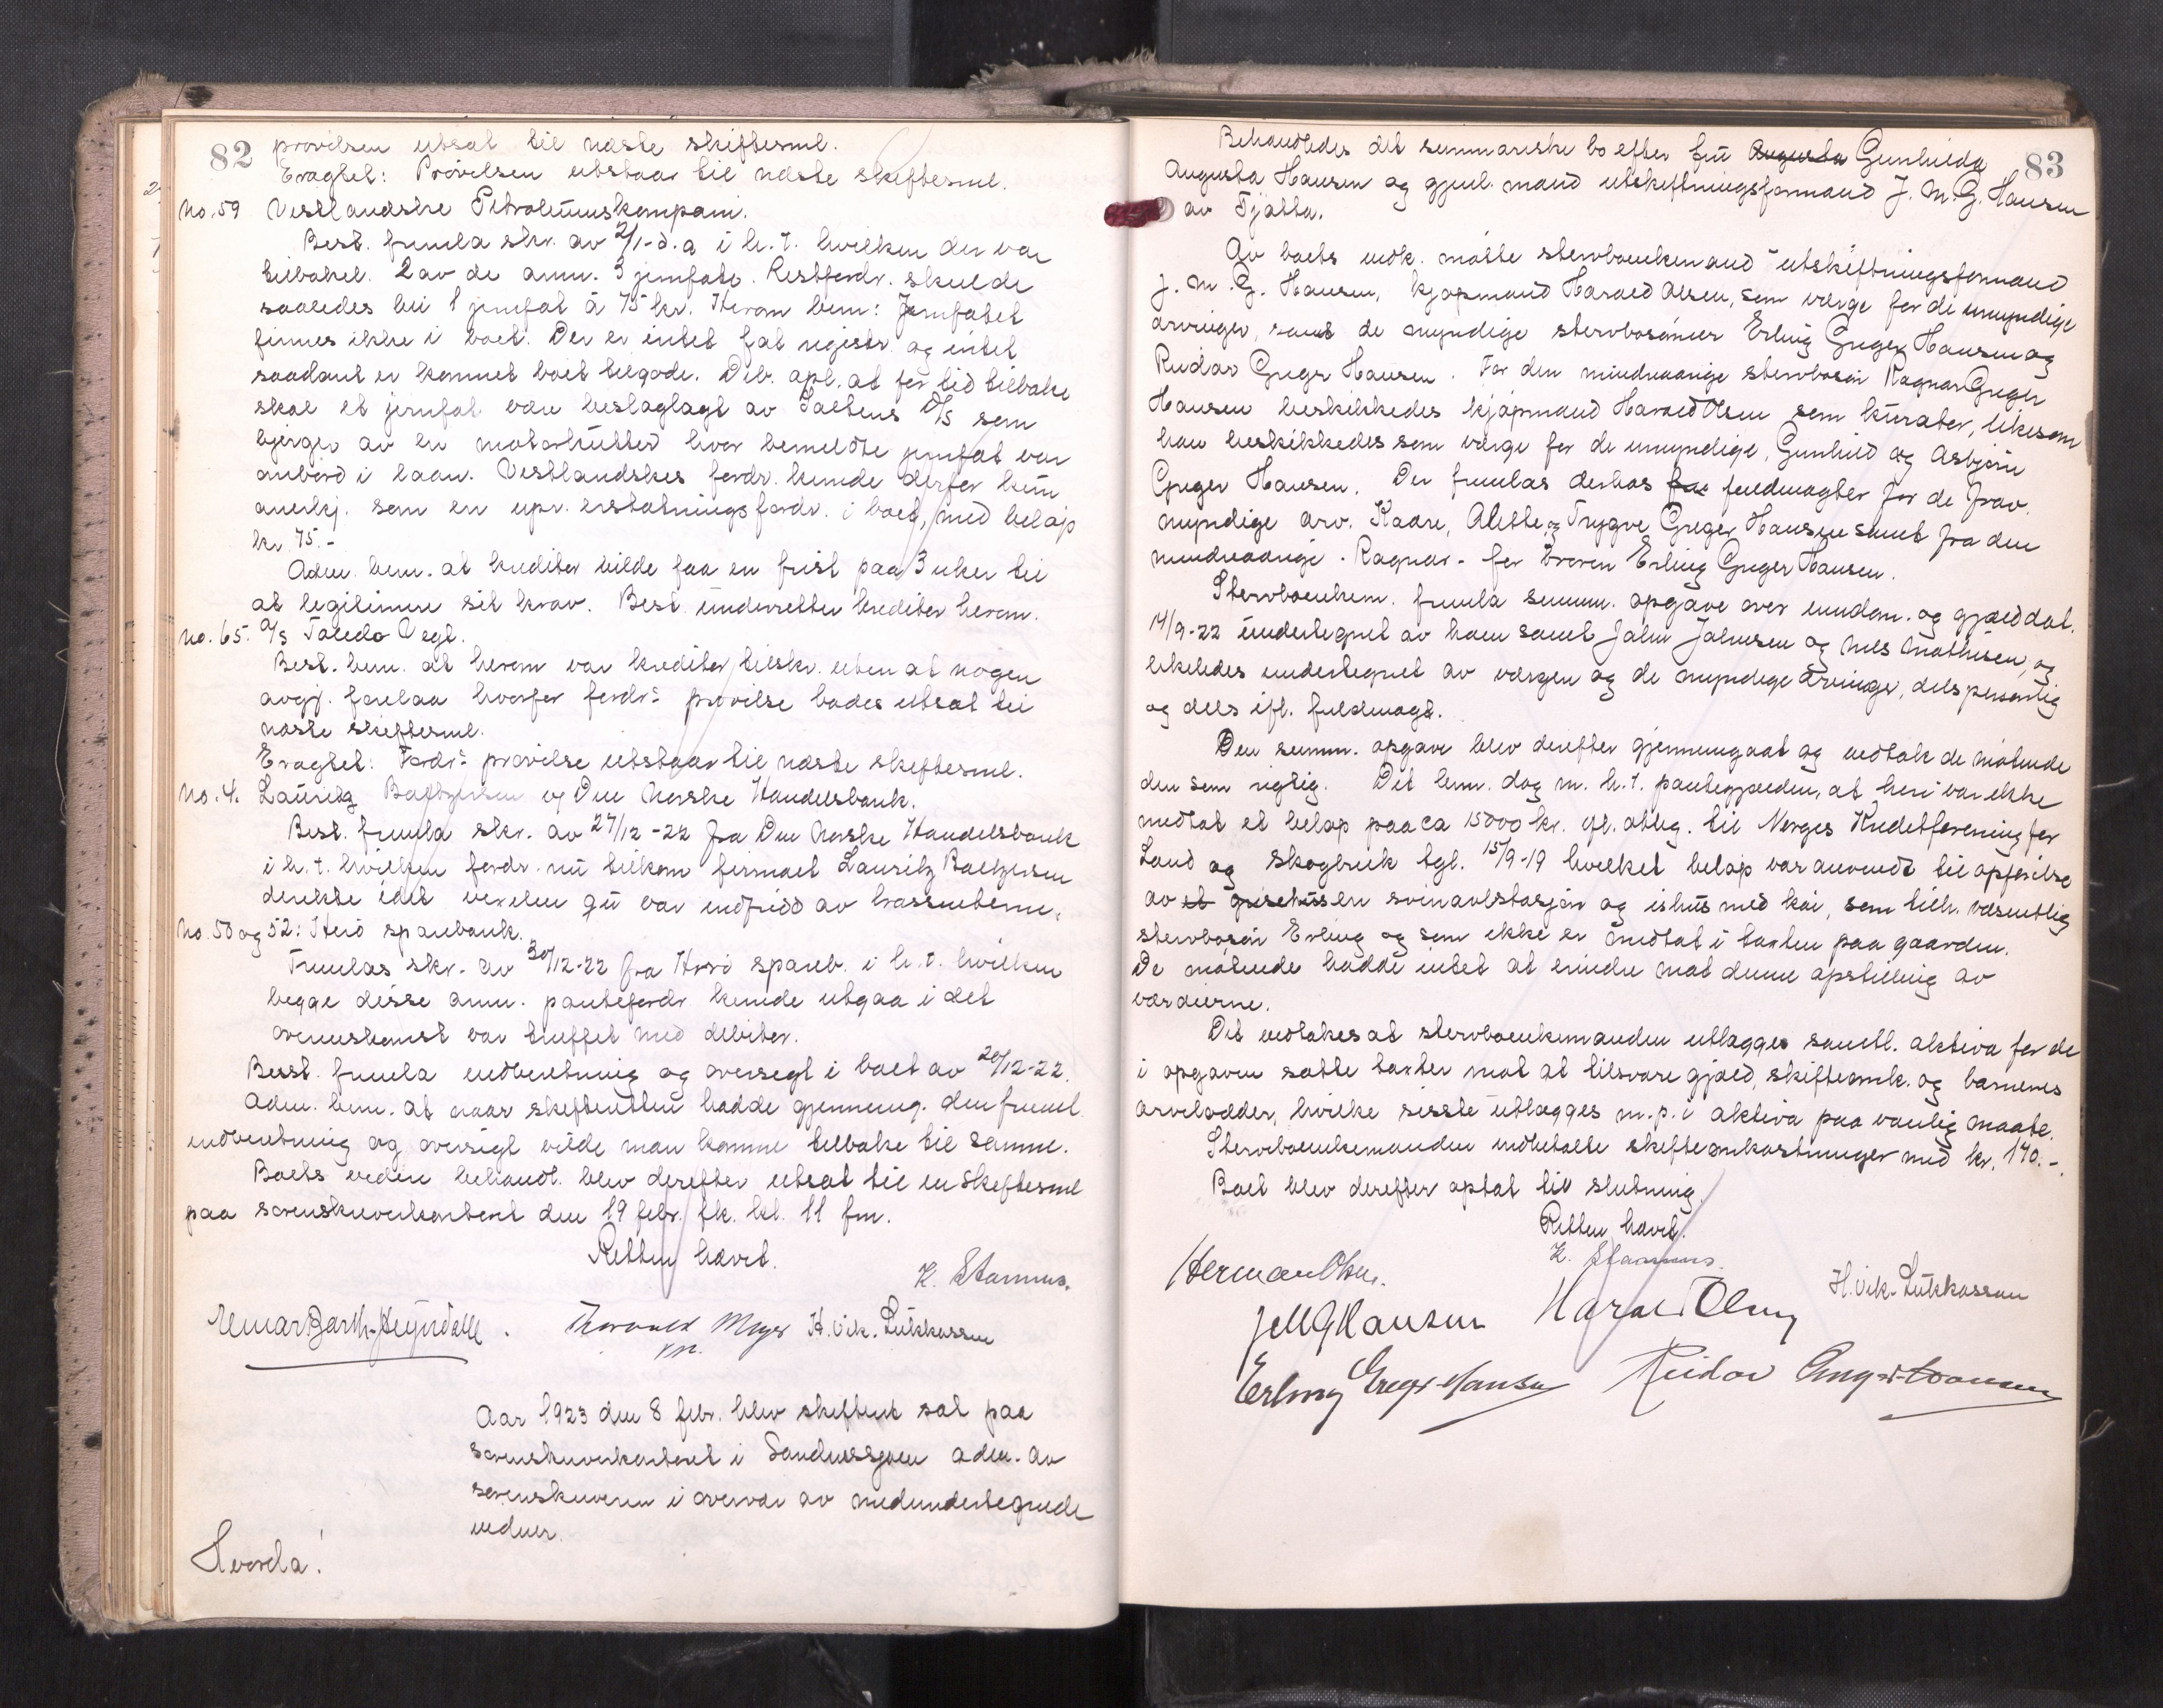 82
prøvelsen utsat til næste skiftesml.
Eragtet: Prøvelsen utstaar til næste skiftesml.
No. 59 Vestlandske Petroleumskompani.
Best. fremla skr. av 2/1-d.a i h.t. hvilken der var
tilbakel. 2 av de anm. 3 jernfate. Restfordr. skulde
saaledes bli 1 jernfat à 75 kr. Herom bem: Jernfatet
finnes ikke i boet. Der er intet fat registr. og intet
saadant er kommet boet tilgode. Deb. opl. at for tid tilbake
skal et jernfat være beslaglagt av Saltens D/S som
bjerger av en motorkutter hvor bemeldte jernfat var
ombord i laan. Vestlandskes fordr. kunde derfor kun
anerkj. som en upr. erstatningsfordr. i boet, med beløp
kr. 75.-
Adm. bem. at kreditor vilde faa en frist paa 3 uker til
at legitimere sit krav. Best. underretter kreditor herom.
No. 65. A/s Toledo Vegt.
Best. bem. at herom var kreditor tilskr. uten at nogen
avgj. forelaa hvorfor fordrs prøvelse bades utsat til
næste skiftesml.
Eragtet: Fordrs prøvelse utstaar til næste skiftesml.
No. 4. Lauritz Baltzersen og Den Norske Handelsbank.
Best. fremla skr. av 27/12-22 fra Den Norske Handelsbank
i h.t. hvilken fordr. nu tilkom firmaet Lauritz Baltzersen
direkte idet vexelen nu var indfridd av trassenterne.
No. 50 og 52: Herø sparebank.
Fremlas skr. av 30/12-22 fra Herø spareb. i h.t. hvilken
begge disse anm. pantefordr. kunde utgaa i det
overenskomst var truffet med debitor.
Best. fremla indberetning og oversigt i boet av 20/12-22.
Adm. bem. at naar skifteretten hadde gjennemg. den freml.
indberetning og oversigt vilde man komme tilbake til samme.
Boets videre behandl. blev derefter utsat til en skiftesml
paa sorenskriverkontoret den 19 febr. fk. kl. 11 fm.
Retten hævet.
K. Stamnes.
Einar Barth-Heyerdahl. Thorvald Meyer H. Vik. Lukkassen
Aar 1923 den 8 febr. blev skifteret sat paa
sorenskriverkontoret i Sandnessjøen adm. av
sorenskriveren i overvær av medundertegnede
vidner.
Hvorda!
83
Behandledes det summariske bo efter fru Augusta Gunhilda
Augusta Hansen og gjenl. mand utskiftningsformand J. M. G. Hansen
av Tjøtta.
Av boets vedk. møtte stervboenkemand utskiftningsformand
J. M. G. Hansen, kjøpmand Harald Olsen, som verge for de umyndige
arvinger, samt de myndige stervbosønner Erling Greger Hansen og
Reidar Greger Hansen. For den mindreaarige stervbosøn Ragnar Greger
Hansen beskikkedes kjøpmand Harald Olsen som kurator, likesom
han beskikkedes som verge for de umyndige, Gunhild og Asbjørn
Greger Hansen. Der fremlas derhos fra fuldmagter for de frav.
myndige arv. Kaare, Alette, og Trygve Greger Hansen samt fra den
mindreaarige - Ragnar - for broren Erling Greger Hansen.
Stervboenkem. fremla summ. opgave over eiendom. og gjæld dat.
14/9-22 undertegnet av ham samt John Johnsen og Nils Mathisen, og
likeledes undertegnet av vergen og de myndige arvinger, dels personlig
og dels ifl. fuldmagt.
Den summ. opgave blev derefter gjennemgaat og vedtok de møtende
den som rigtig. Det bem. dog m. h. t. pantegjælden, at heri var ikke
medtat et beløp paa ca 15000 kr. efl. oblig. til Norges Kreditforening for
Land og Skogbruk tgl. 15/9-19 hvilket beløp var anvendt til opførelse
av et grisehus en svinavlstasjon og ishus med kai, som tilh. væsentlig
stervbosøn Erling og som ikke er indtat i taxten paa gaarden.
De møtende hadde intet at erindre mot denne opstilling av
værdierne.
Det vedtokes at stervboenkemanden utlægges samtl. aktiva for de
i opgaven satte taxter mot at tilsvare gjæld, skifteomk. og barnenes
arvelodder, hvilke sisste utlægges m.p. i aktiva paa vanlig maate.
Stervboenkemanden indbetalte skifteomkostninger med kr. 170.-.
Boet blev derefter optat til slutning.
Retten hævet.
K. Stamnes.
Herman Olsen. H. Vik. Lukkassen
J M G Hansen Harald Olsen
Erling Greger Hansen Reidar Greger Hansen